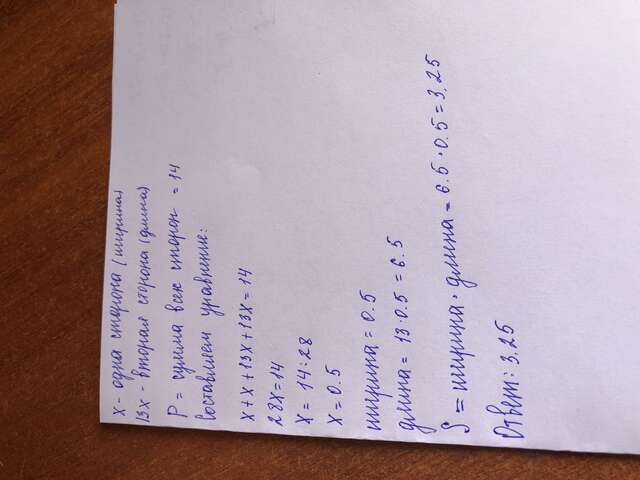 x - одна сторона (ширина)
13x - вторая сторона (длина)
P = сумма всех сторон = 14
составляем уравнение:
x + x + 13x + 13x = 14
28x = 14
x = 14 : 28
x = 0.5
ширина = 0.5
длина = 13 · 0.5 = 6.5
S = ширина · длина = 6.5 · 0.5 = 3.25
Ответ: 3.25